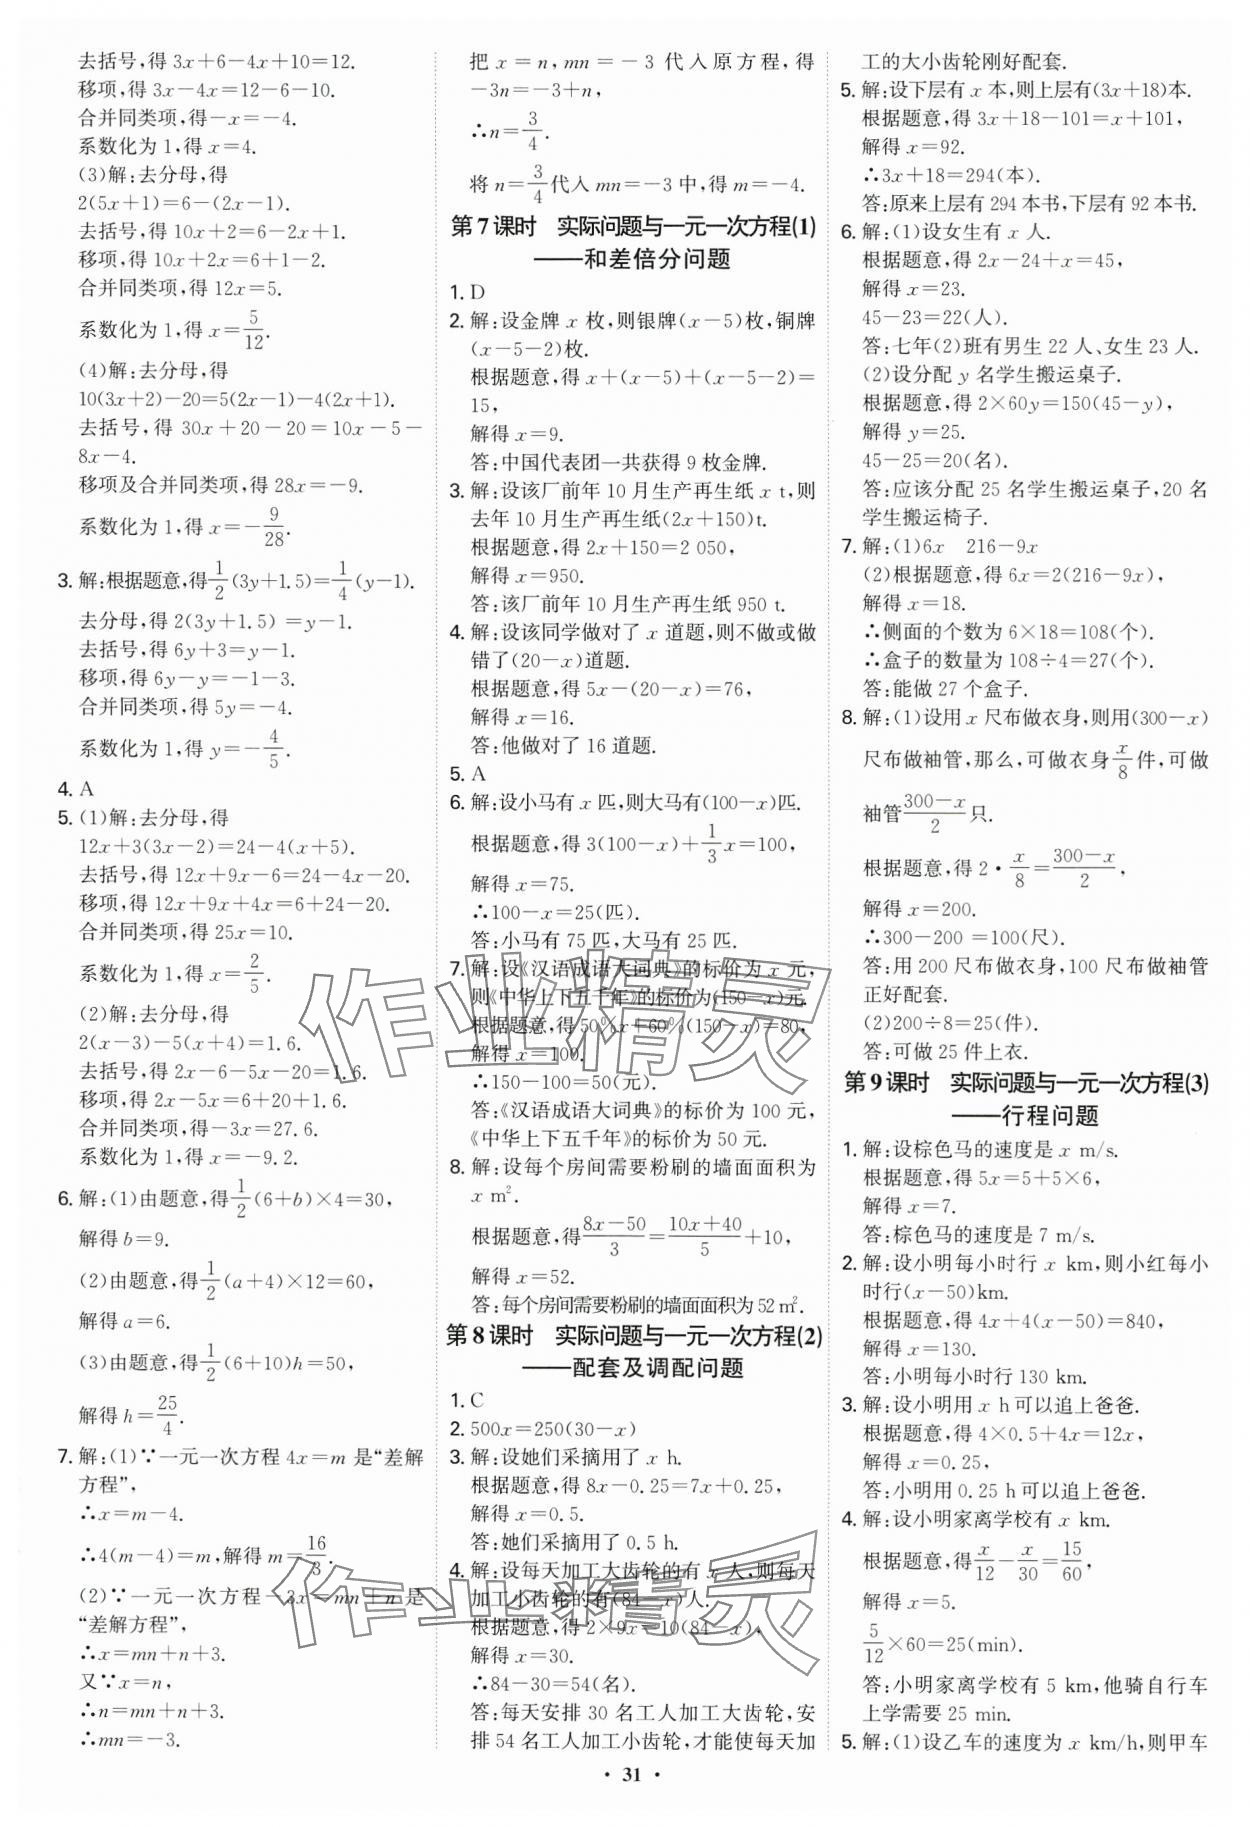 去括号,得 3x+6-4x+10=12.
移项,得 3x-4x=12-6-10.
合并同类项,得-x=-4.
系数化为 1,得 x=4.
(3)解:去分母,得
2(5x+1)=6-(2x-1).
去括号,得 10x+2=6-2x+1.
移项,得 10x+2x=6+1-2.
合并同类项,得 12x=5.
系数化为 1,得 x=5/12.
(4)解:去分母,得
10(3x+2)-20=5(2x-1)-4(2x+1).
去括号,得 30x+20-20=10x-5-
8x-4.
移项及合并同类项,得 28x=-9.
系数化为 1,得 x=-9/28.
3. 解:根据题意,得1/2(3y+1.5)=1/4(y-1).
去分母,得 2(3y+1.5) =y-1.
去括号,得 6y+3=y-1.
移项,得 6y-y=-1-3.
合并同类项,得 5y=-4.
系数化为 1,得 y=-4/5.
4. A
5. (1)解:去分母,得
12x+3(3x-2)=24-4(x+5).
去括号,得 12x+9x-6=24-4x-20.
移项,得 12x+9x+4x=6+24-20.
合并同类项,得 25x=10.
系数化为 1,得 x=2/5.
(2)解:去分母,得
2(x-3)-5(x+4)=1.6.
去括号,得 2x-6-5x-20=1.6.
移项,得 2x-5x=6+20+1.6.
合并同类项,得-3x=27.6.
系数化为 1,得 x=-9.2.
6. 解:(1)由题意,得1/2(6+b)×4=30,
解得 b=9.
(2)由题意,得1/2(a+4)×12=60,
解得 a=6.
(3)由题意,得1/2(6+10)h=50,
解得 h=25/4.
7. 解:(1)∵一元一次方程 4x=m 是“差解
方程”,
∴x=m-4.
∴4(m-4)=m,解得 m=16/3.
(2)∵一元一次方程-3x=mn+n 是
“差解方程”,
∴x=mn+n+3.
又∵x=n,
∴n=mn+n+3.
∴mn=-3.
把 x=n,mn=-3 代入原方程,得
-3n=-3+n,
∴n=3/4.
将 n=3/4代入 mn=-3 中,得 m=-4.
第 7 课时 实际问题与一元一次方程(1)
——和差倍分问题
1. D
2. 解:设金牌 x 枚,则银牌(x-5)枚,铜牌
(x-5-2)枚.
根据题意,得 x+(x-5)+(x-5-2)=
15,
解得 x=9.
答:中国代表团一共获得 9 枚金牌.
3. 解:设该厂前年 10 月生产再生纸 x t,则
去年 10 月生产再生纸(2x+150)t.
根据题意,得 2x+150=2 050,
解得 x=950.
答:该厂前年 10 月生产再生纸 950 t.
4. 解:设该同学做对了 x 道题,则不做或做
错了(20-x)道题.
根据题意,得 5x-(20-x)=76,
解得 x=16.
答:他做对了 16 道题.
5. A
6. 解:设小马有 x 匹,则大马有(100-x)匹.
根据题意,得 3(100-x)+1/3x=100,
解得 x=75.
∴100-x=25(匹).
答:小马有 75 匹,大马有 25 匹.
7. 解:设《汉语成语大词典》的标价为 x 元,
则《中华上下五千年》的标价为(150-x)元.
根据题意,得 50%x+60%(150-x)=80,
解得 x=100.
∴150-100=50(元).
答:《汉语成语大词典》的标价为 100 元,
《中华上下五千年》的标价为 50 元.
8. 解:设每个房间需要粉刷的墙面面积为
x m².
根据题意,得(8x-50)/3=(10x+40)/5+10,
解得 x=52.
答:每个房间需要粉刷的墙面面积为 52 m².
第 8 课时 实际问题与一元一次方程(2)
——配套及调配问题
1. C
2. 500x=250(30-x)
3. 解:设她们采摘用了 x h.
根据题意,得 8x-0.25=7x+0.25,
解得 x=0.5.
答:她们采摘用了 0.5 h.
4. 解:设每天加工大齿轮的有 x 人,则每天
加工小齿轮的有(84-x)人.
根据题意,得 2×9x=10(84-x),
解得 x=30.
∴84-30=54(名).
答:每天安排 30 名工人加工大齿轮,安
排 54 名工人加工小齿轮,才能使每天加
工的大小齿轮刚好配套.
5. 解:设下层有 x 本,则上层有(3x+18)本.
根据题意,得 3x+18-101=x+101,
解得 x=92.
∴3x+18=294(本).
答:原来上层有 294 本书,下层有 92 本书.
6. 解:(1)设女生有 x 人.
根据题意,得 2x-24+x=45,
解得 x=23.
45-23=22(人).
答:七年(2)班有男生 22 人、女生 23 人.
(2)设分配 y 名学生搬运桌子.
根据题意,得 2×60y=150(45-y),
解得 y=25.
45-25=20(名).
答:应该分配 25 名学生搬运桌子,20 名
学生搬运椅子.
7. 解:(1)6x 216-9x
(2)根据题意,得 6x=2(216-9x),
解得 x=18.
∴侧面的个数为 6×18=108(个).
∴盒子的数量为 108÷4=27(个).
答:能做 27 个盒子.
8. 解:(1)设用 x 尺布做衣身,则用(300-x)
尺布做袖管,那么,可做衣身x/8件,可做
袖管(300-x)/2只.
根据题意,得 2·x/8=(300-x)/2,
解得 x=200.
∴300-200 =100(尺).
答:用 200 尺布做衣身,100 尺布做袖管
正好配套.
(2)200÷8=25(件).
答:可做 25 件上衣.
第 9 课时 实际问题与一元一次方程(3)
——行程问题
1. 解:设棕色马的速度是 x m/s.
根据题意,得 5x=5+5×6,
解得 x=7.
答:棕色马的速度是 7 m/s.
2. 解:设小明每小时行 x km,则小红每小
时行(x-50)km.
根据题意,得 4x+4(x-50)=840,
解得 x=130.
答:小明每小时行 130 km.
3. 解:设小明用 x h 可以追上爸爸.
根据题意,得 4×0.5+4x=12x,
解得 x=0.25.
答:小明用 0.25 h 可以追上爸爸.
4. 解:设小明家离学校有 x km.
根据题意,得x/12-x/30=15/60,
解得 x=5.
5/12×60=25(min).
答:小明家离学校有 5 km,他骑自行车
上学需要 25 min.
5. 解:(1)设乙车的速度为 x km/h,则甲车
• 31 •
作业精灵
作业精灵